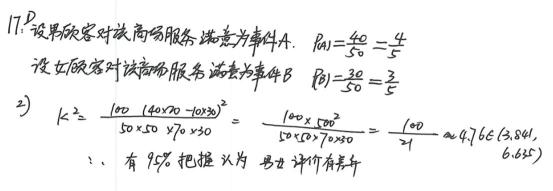 17. 1) 设男顾客对该商场服务满意为事件A. P(A)=40/50=4/5
设女顾客对该商场服务满意为事件B P(B)=30/50=3/5
2) K²=100(40×20-10×30)²/50×50×70×30=100×500²/50×50×70×30=100/21≈4.76∈(3.841,
6.635)
∴ 有95%把握认为男女评价有差异